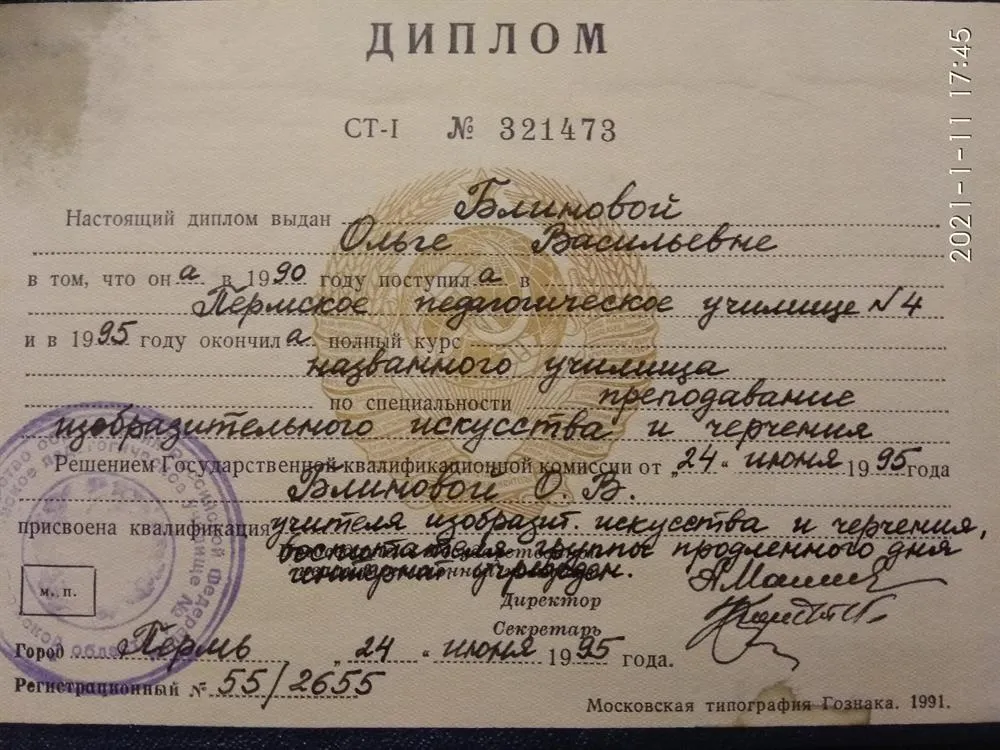 ДИПЛОМ
СТ-I № 321473
Настоящий диплом выдан Блиновой
Ольге Васильевне
в том, что он а в 1990 году поступил а в
Пермское педагогическое училище №4
и в 1995 году окончил а полный курс
названного училища
по специальности преподавание
изобразительного искусства и черчения
Решением Государственной квалификационной комиссии от „24“ июня 1995 года
Блиновой О. В.
присвоена квалификация учителя изобразит. искусства и черчения,
воспитателя группы продленного дня
Директор
Секретарь
м. п.
Город Пермь „24“ июня 1995 года.
Регистрационный № 55/2655
Московская типография Гознака. 1991.
2021-1-11 17:45